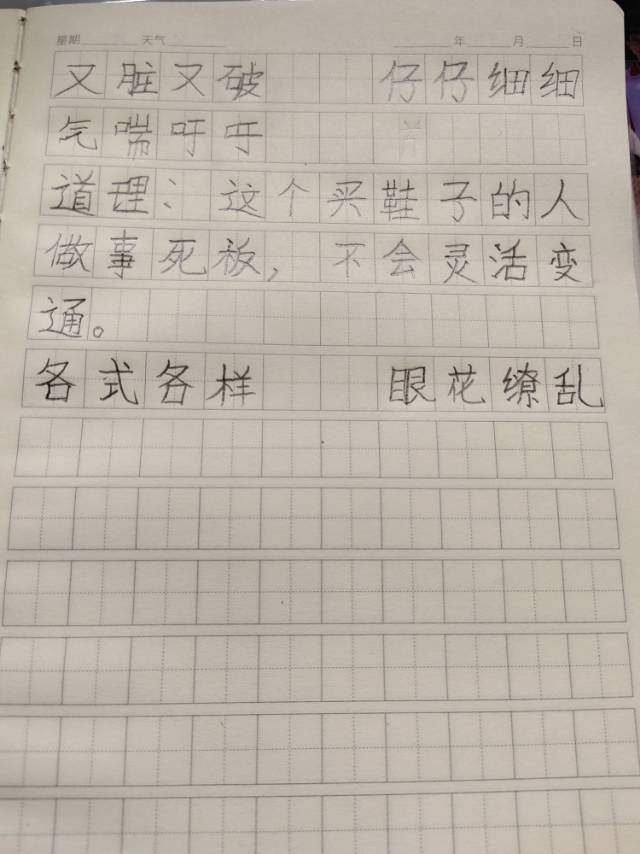 星期 天气 年 月 日
又脏又破 仔仔细细
气喘吁吁
道理：这个买鞋子的人
做事死板，不会灵活变
通。
各式各样 眼花缭乱